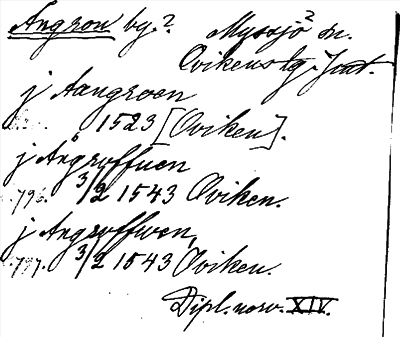 Angron by.? Myssjö ? sn.
Ovikens tg. Jmt.
j Aangroen
1523 [Oviken].
j Ångroffuen
.796. 3/2 1543 Oviken.
j Angroffwen,
.797. 3/2 1543 Oviken.
Dipl. norv. XIV.